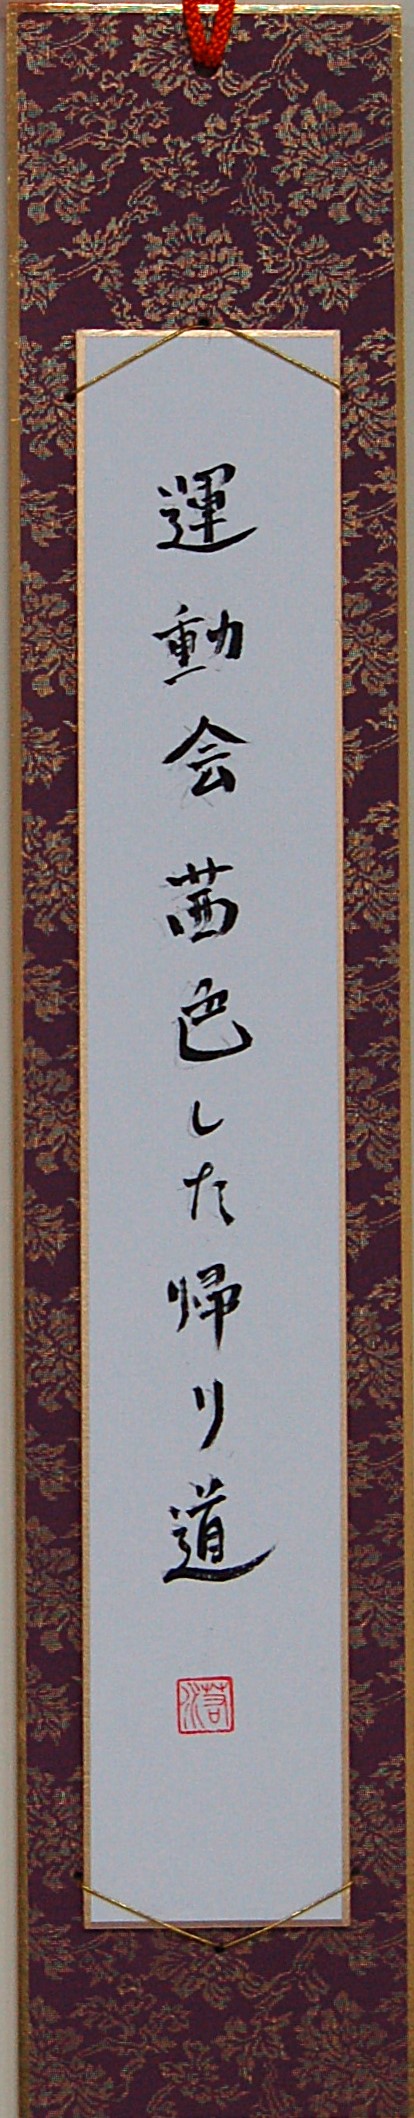 運動会茜色した帰り道